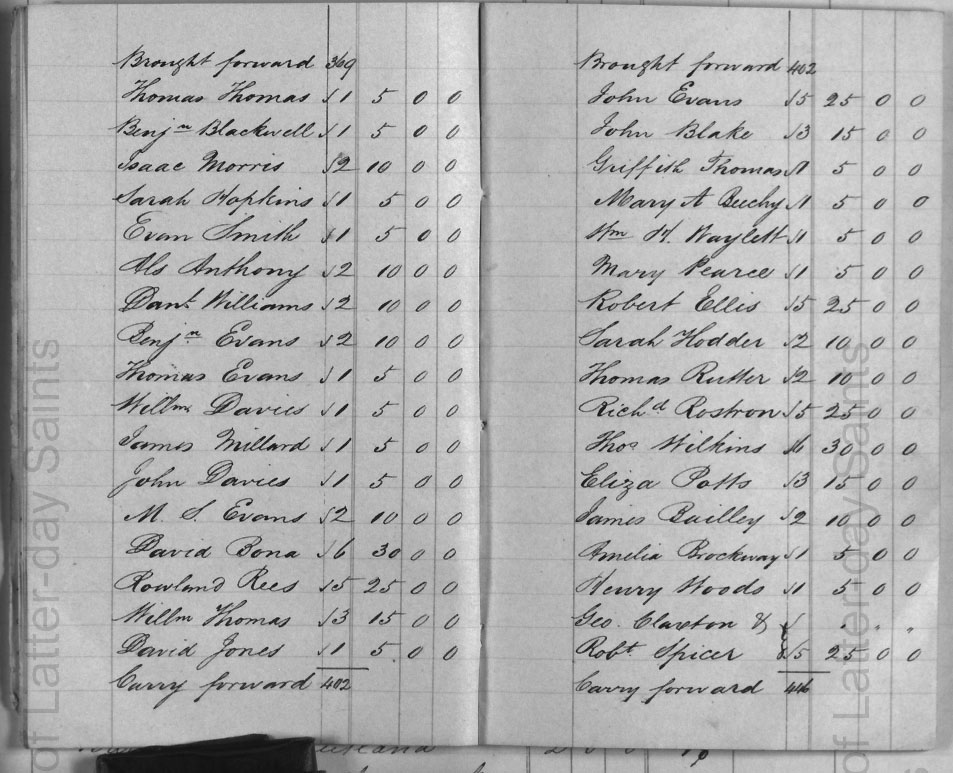 Brought forward 369
Thomas Thomas 1 5 0 0
Benjn Blackwell 1 5 0 0
Isaac Morris 2 10 0 0
Sarah Hopkins 1 5 0 0
Evan Smith 1 5 0 0
Als Anthony 2 10 0 0
Danl Williams 2 10 0 0
Benjn Evans 2 10 0 0
Thomas Evans 1 5 0 0
Willm Davies 1 5 0 0
James Millard 1 5 0 0
John Davies 1 5 0 0
M. S. Evans 2 10 0 0
David Bona 6 30 0 0
Rowland Rees 5 25 0 0
Willm Thomas 3 15 0 0
David Jones 1 5 0 0
Carry forward 402
Brought forward 402
John Evans 5 25 0 0
John Blake 3 15 0 0
Griffith Thomas 1 5 0 0
Mary A Beechy 1 5 0 0
Wm H. Waylett 1 5 0 0
Mary Pearce 1 5 0 0
Robert Ellis 5 25 0 0
Sarah Hodder 2 10 0 0
Thomas Rutter 2 10 0 0
Richd Rostron 5 25 0 0
Thos Wilkins 6 30 0 0
Eliza Potts 3 15 0 0
James Bailley 2 10 0 0
Amelia Brockway 1 5 0 0
Henry Woods 1 5 0 0
Geo. Clareton &
Robt Spicer 5 25 0 0
Carry forward 446
of Latter-day Saints
of Latter-day Saints